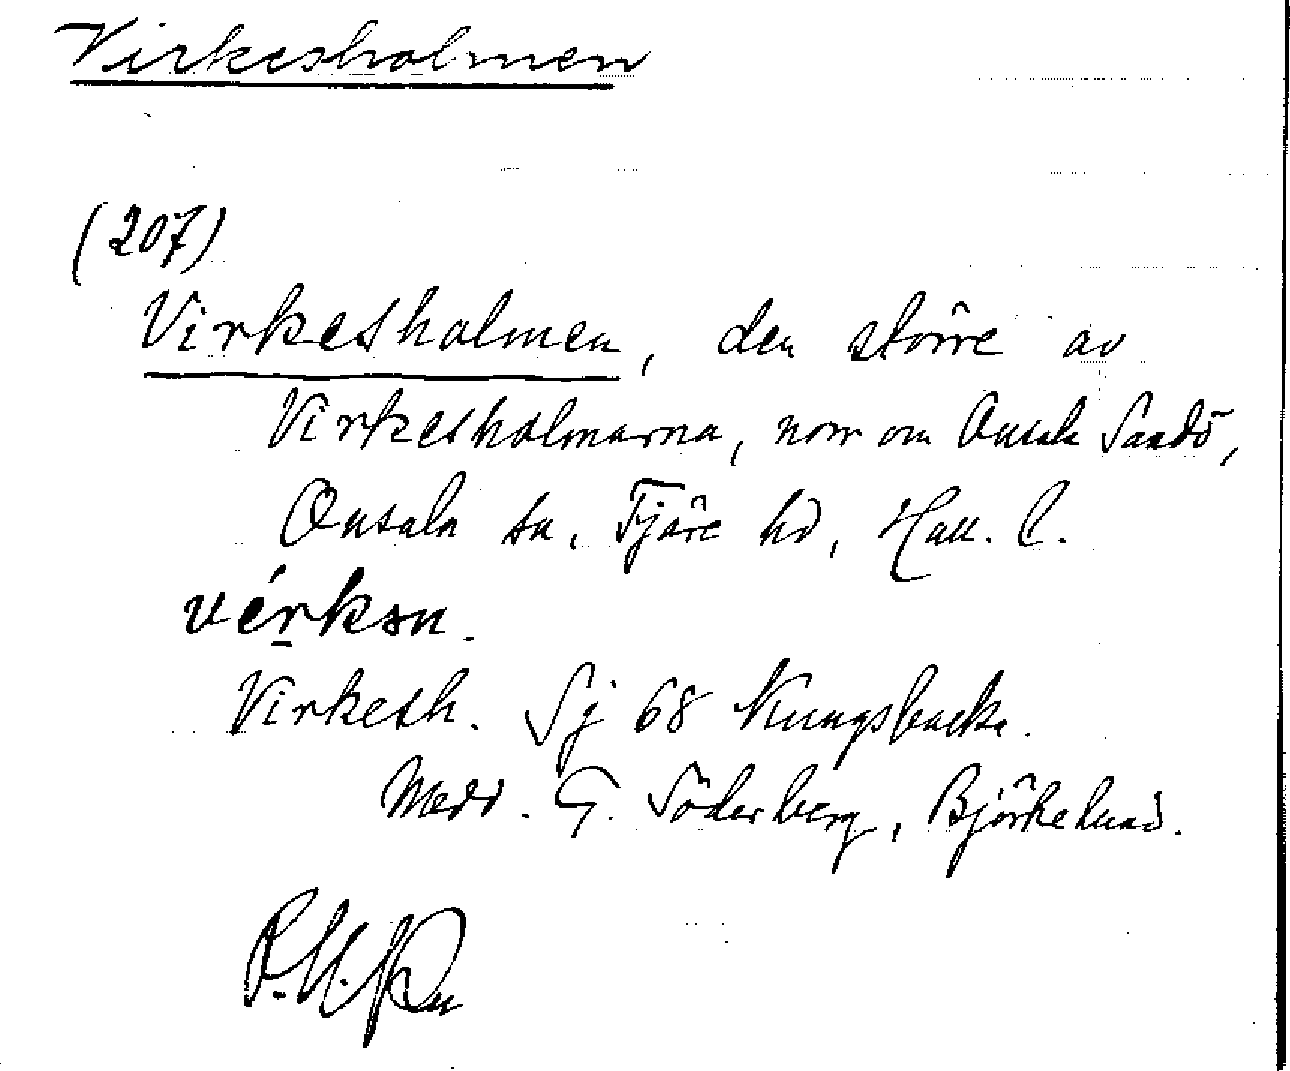 Virkesholmen
(207)
Virkesholmen, den större av
Virkesholmarna, norr om Onsala Sandö,
Onsala sn, Fjäre hd, Hall. l.
vérkson.
Virkesh. Sj 68 Kungsbacka.
Medd. G. Söderberg, Björkelund.